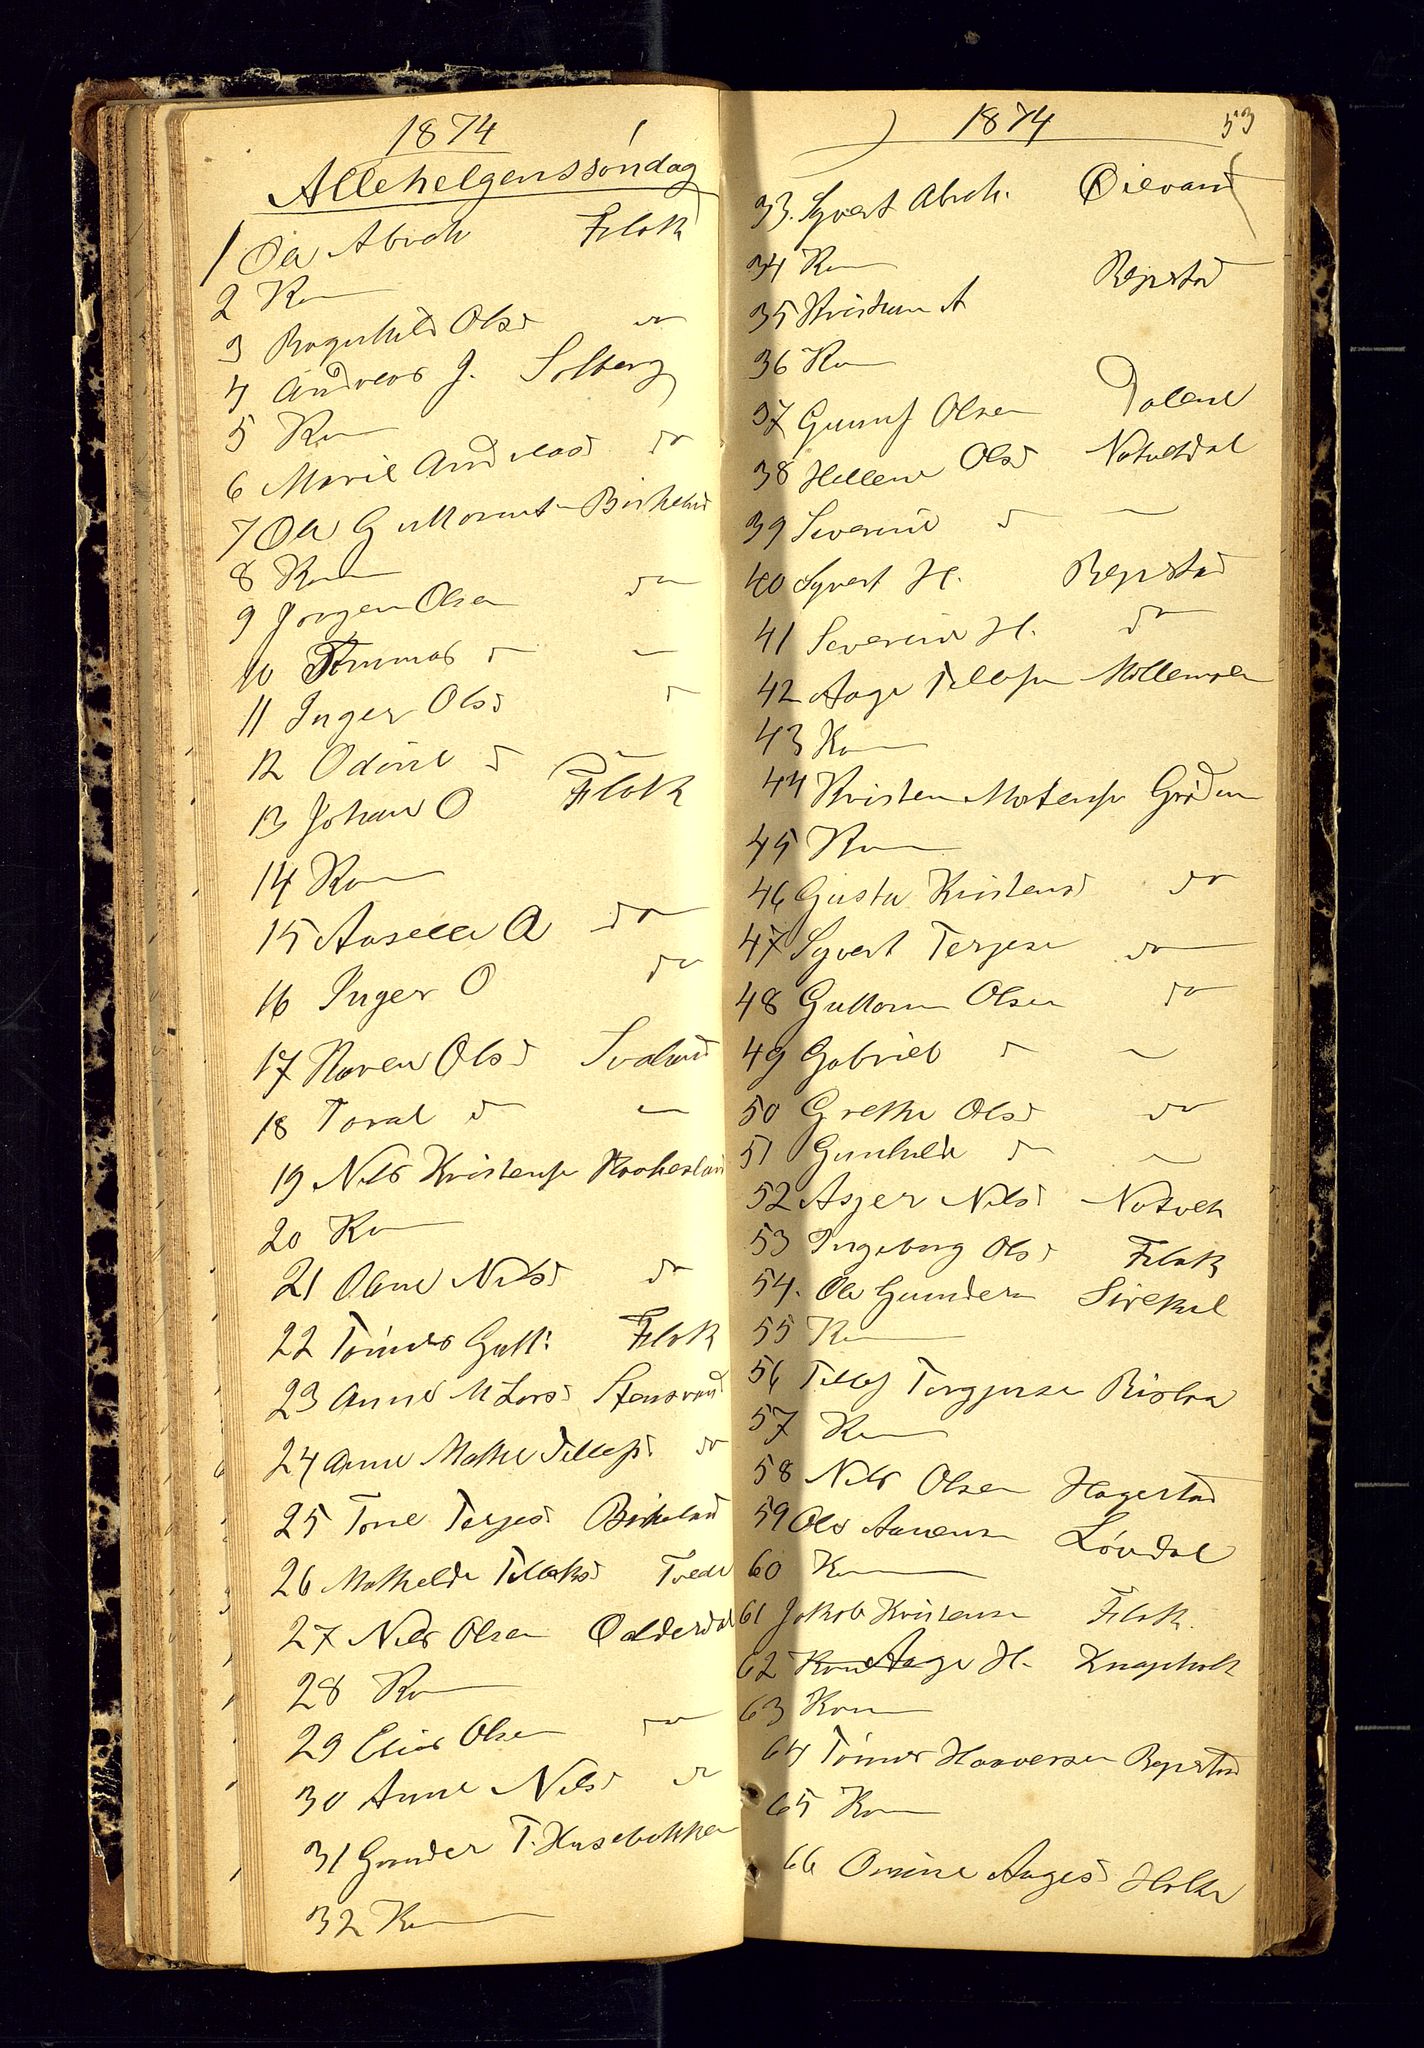 1874
Allehelgenssøndag
1 Ola Abrah Flak
2 Kon
3 Ragnhild Olsd do
4 Andreas J. Solberg
5 Kon
6 Marie Andreasd do
7 Ola Guttormsen Birkeland
8 Kon
9 Jørgen Olsen do
10 Tommas d —
11 Inger Olsd d
12 Odine d —
13 Johan O Flak
14 Kon
15 Aaselle A do
16 Inger O do
17 Karen Olsd Svaland
18 Toral d —
19 Nils Kristensen
20 Kon
21 Oline Nilsd do
22 Tønnes Gutt: Flak
23 Anne M Larsd Stensvand
24 Anne Mathe Tellefsd do
25 Tone Terjesd Birkeland
26 Mathilde Tellefsd Tvede
27 Nils Olsen
28 Kon
29 Elias Olsen do
30 Anne Nilsd do
31 Gunder T. Husebokken
32 Kon
1874 53
33. Syvert Abrah. Øievand
34 Kon
35 Kristian A Repstad
36 Kon
37 Gunuf Olsen Dalene
38 Hellene Olsd
39 Severine d —
40 Syvert H. Repstad
41 Severine H. do
42 Aage Tellefsen
43 Kon
44 Kristen Mortensen
45 Kon
46 Gusta Kristensd do
47 Syvert Terjesen do
48 Guttorm Olsen do
49 Gabriel d —
50 Grethe Olsd do
51 Gunhilde d —
52 Asjer Nilsd
53 Ingeborg Olsd Flak
54. Ola Gundersen
55 Kon
56 Tellef Torgjersen
57 Kon
58 Nils Olsen Hagestad
59 Ola Aanensen Løvdal
60 Kon
61 Jakob Kristensen Flak.
62 Kon Aage H. Knapholt
63 Kon
64 Tønnes Haaversen Repstad
65 Kon
66 Omine Aagesd Holte